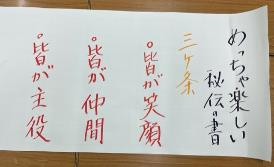 めっちゃ楽しい
秘伝の書
三ヶ条
。皆が笑顔
。皆が仲間
。皆が主役